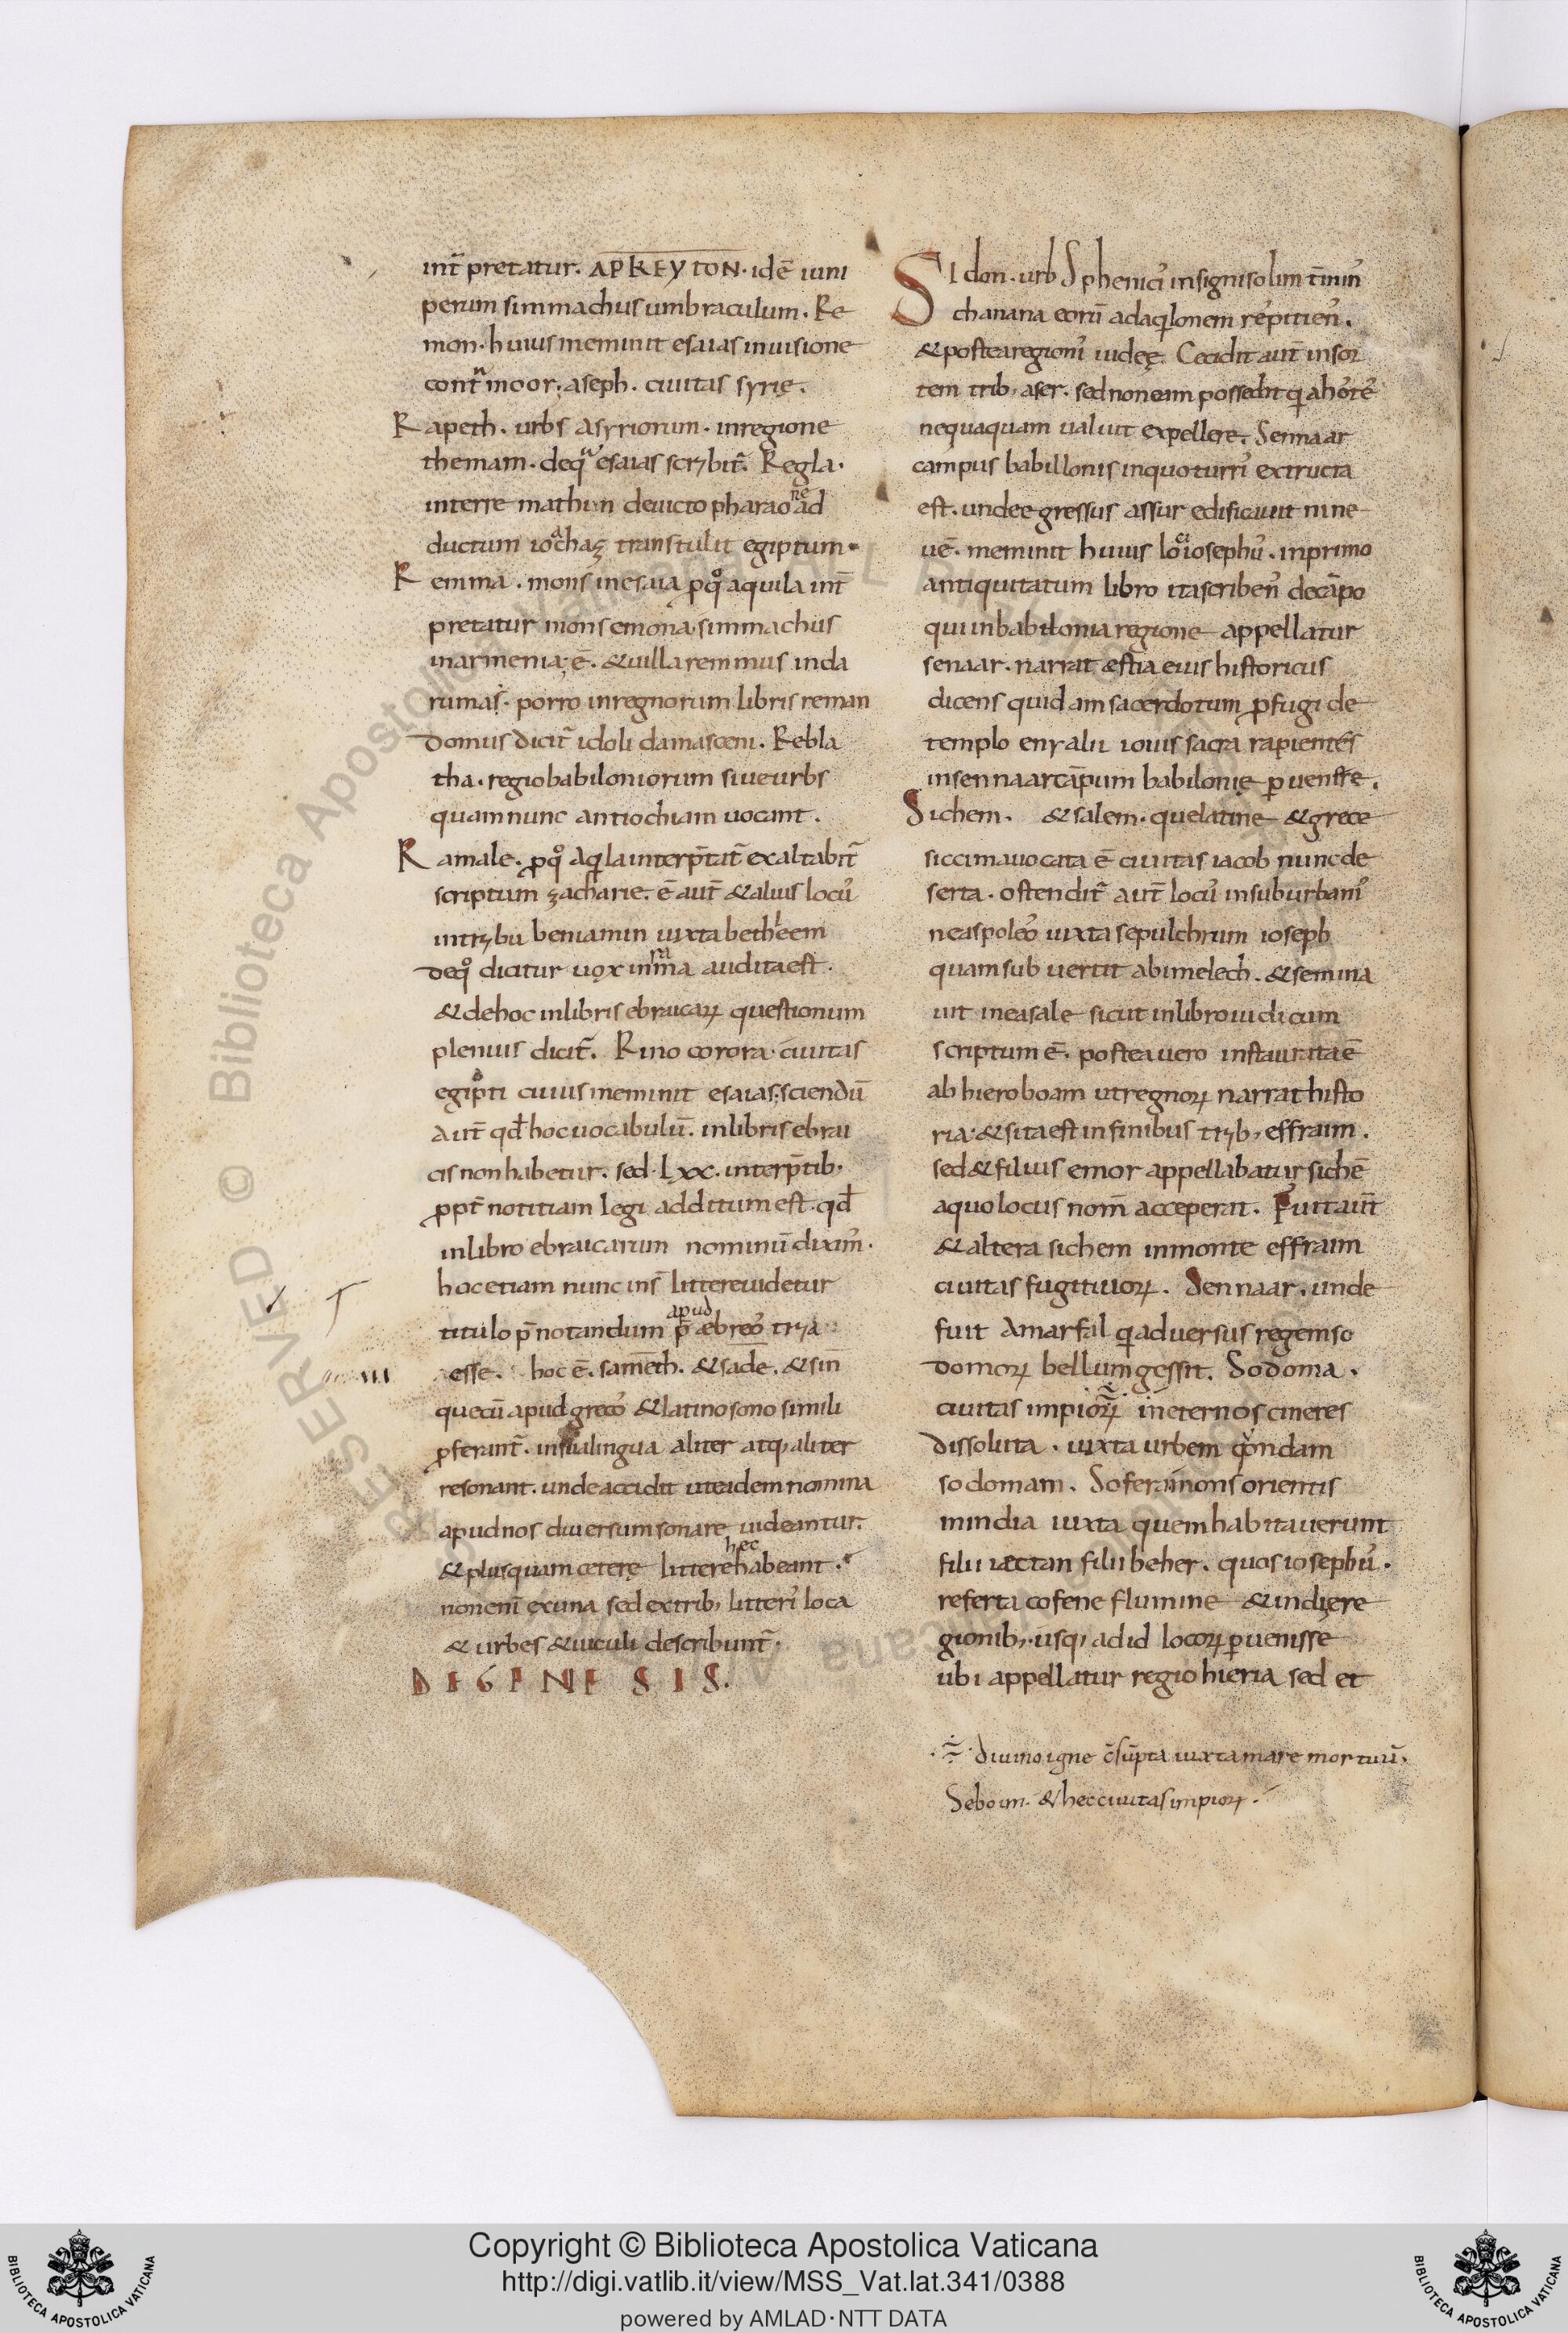 int̄pretatur. ΑΡΚΕΥΤΟΝ. idē iuni
perum simmachus umbraculum. Re
mon. huius meminit esaias in uisione
cont̄ moor. aseph. ciuitas syrię.
Rapeth. urbs asyriorum. in regione
themam. de qua esaias scrybit̄. Regla.
in terre mathim deuicto pharaone ad
ductum ioachaz transtulit egiptum.
Remma. mons in esaia p̱ q° aquila int̄
pretatur mons emona. simmachus
in armenia; ē. & uilla remmus in da
rumas. porro in regnorum libris reman
domus dicit̄ idoli damasceni. Rebla
tha. regio babiloniorum siue urbs
quam nunc antiochiam uocant.
Ramale. p̱ q° aqila interp̄tat̄ exaltabit̄
scriptum zacharie. ē aut̄ & alius locu᾽
in trybu beniamin iuxta bethleem
de q° dicitur uox in rama audita est.
& de hoc in libris ebraicaꝝ questionum
plenius dicit̄. Rinocorora. ciuitas
egipti cuius meminit esaias. sciendū
aut̄ qđ hoc uocabulū. in libris ebrai
cis non habetur. sed. Lxx. interp̄tib;
p̱pt̄ notitiam legi additum est. qđ
in libro ebraicarum nominū dixim᾽.
hoc etiam nunc in s̄ littere uidetur
titulo p̄notandum apud p̄ æbreo᾽ trya
esse. hoc ē. sameth. & sade. & sin
que cū apud greco᾽ & latino sono simili
p̱ferunt̄. in sua lingua aliter atq; aliter
resonant. unde accidit ut eadem nomina
apud nos diuersum sonare uideantur.
& plus quam ceterę littere hec habeant.
non eni᾽ ex una sed ex trib; litteri᾽ loca
& urbes & uiculi describunt̄.
DE GENESIS.
Sidon. urbs phenici᾽ insignis olim t̄min᾽
chananaeorū ad aqilonem re᾽pitien᾽.
& postea regioni᾽ iudeę. Cecidit aut̄ in sor
tem trib; aser. sed non eam possedit qi ahote᾽
nequaquam ualuit expellere. Sennaar
campus babillonis in quo turri᾽ extructa
est. unde egressus assur edificauit nine
uē. meminit huius loci iosephu᾽. in primo
antiquitatum libro ita scriben᾽ de cāpo
qui in babilonia regione appellatur
senaar. narrat æstia eius historicus
dicens quidam sacerdotum p̱fugi de
templo enyalii iouis sacra rapientes
in sennaar cāpum babilonię p̱uenire.
Sichem. & salem. que latine & grece
siccima uocata ē ciuitas iacob nunc de
serta. ostendit̄ aut̄ locu᾽ in suburbani᾽
neaspoleo᾽ iuxta sepulchrum ioseph
quam subuertit abimelech. & semina
uit in ea sale sicut in libro iudicum
scriptum ē. postea uero instaurata ē
ab hieroboam ut regnoꝝ narrat histo
ria. & sita est in finibus tryb; effraim.
sed & filius emor appellabatur sichē
a quo locus nom̄ acceperat. Fuit aut̄
& altera sichem in monte effraim
ciuitas fugitiuoꝝ. Sennaar. unde
fuit Amarfal qi aduersus regem so
domoꝝ bellum gessit. Sodoma.
ciuitas impioꝝ in eternos cineres
dissoluta. iuxta urbem qondam
sodomam. Sofera mons orientis
in india iuxta quem habitauerunt
filii iectan filii beher. quos iosephu᾽.
refert a cofene flumine & indię re
gionib; usq; ad id locoꝝ p̱uenisse
ubi appellatur regio hieria sed et
diuino igne c̄sūpta iuxta mare mortuū.
Seboim. & hec ciuitas impioꝝ.
Copyright © Biblioteca Apostolica Vaticana
http://digi.vatlib.it/view/MSS_Vat.lat.341/0388
powered by AMLAD·NTT DATA